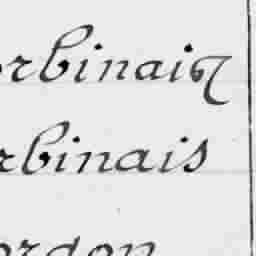 orbinais
rbinais
ordon